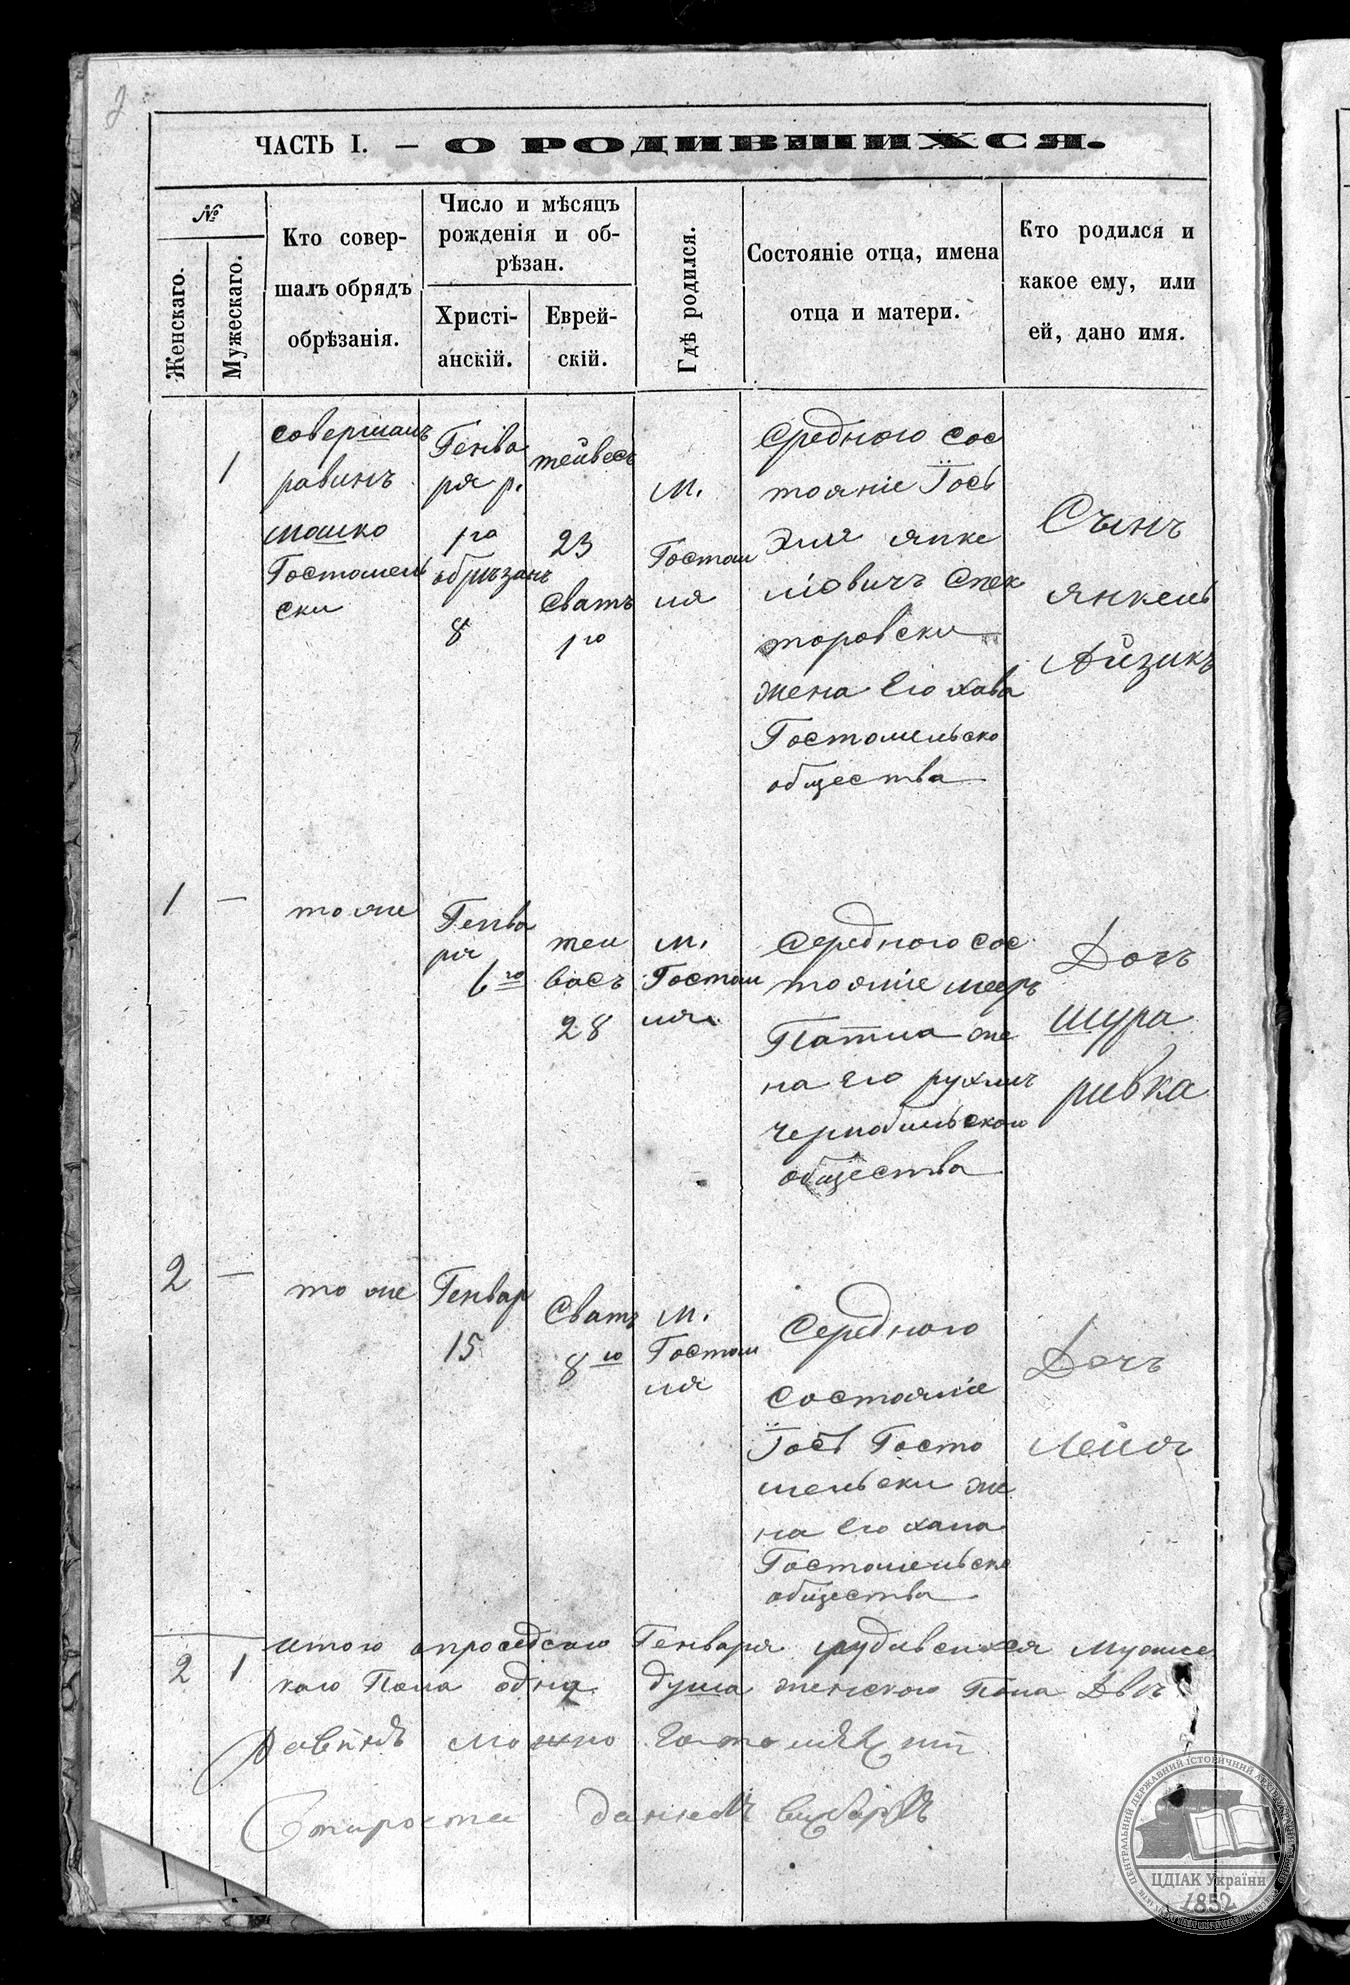 2
ЧАСТЬ I. — О РОДИВШИХСЯ.
№
Женскаго.
Мужескаго.
Кто совер-
шалъ обрядъ
обрѣзанія.
Число и мѣсяцъ
рожденія и об-
рѣзан.
Христі-
анскій.
Еврей-
скій.
Гдѣ родился.
Состояніе отца, имена
отца и матери.
Кто родился и
какое ему, или
ей, дано имя.
1
совершалъ
равинъ
мошко
Гостомель
ски
Генва
ря р.
1го
обрѣзанъ
8
тейвесъ
23
Сватъ
1го
м.
Гостом
ля
Средного сос
тояніе Іось
Эля янке
ліовичъ Спек
торовски
жена Его хава
Гостомельско
общества
Сынъ
Янкель
Айзикъ
1 —
то же
Генва
ря
6го
теи
васъ
28
м.
Гостом
ля
Середного сос
тояніе меер
жe
на Его рухля
чернобильского
общества
Дочъ
Шура
ривка
2 —
то же
Генвар
15
Сватъ
8го
м.
Гостом
ля
Середного
состояніе
Іось Госто
мельски же
на Его хана
Гостомельско
общества
Дочъ
Лейя
2 1
итого Генваря мужес
каго Пола одна душа женского Пола Двѣ
Равінъ мошко
Староста
ЦЕНТРАЛЬНИЙ ДЕРЖАВНИЙ ІСТОРИЧНИЙ АРХІВ
ЦДІАК України
1852